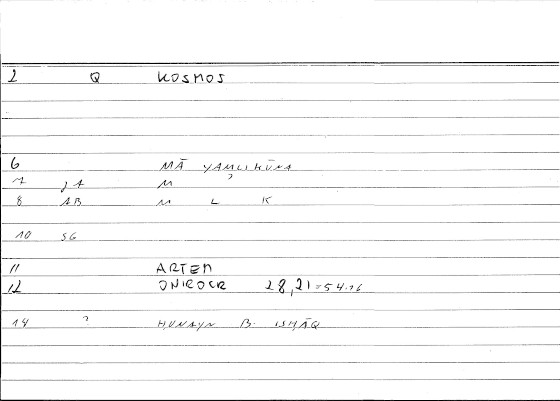 2 Q KOSMOS
6 MĀ YAMLIKŪNA
7 JA M ?
8 AB M L K
10 SG
11 ARTEM
12 ONIROCR 28,21=54.16
14 ? ḤUNAYN B. ISḤĀQ